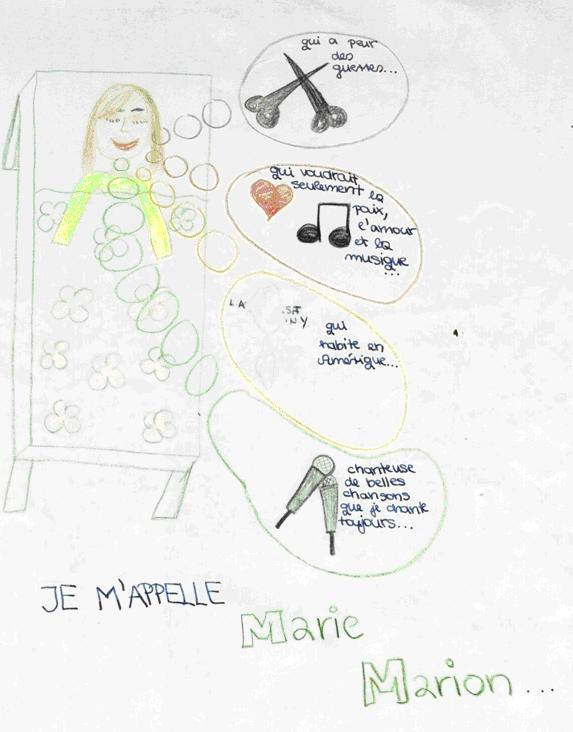 qui a peur
des
guerres...
qui voudrait
seulement la
paix,
l'amour
et la
musique
...
L.A
.SF
.N.Y.
qui
habite en
Amérique...
chanteuse
de belles
chansons
que je chante
toujours...
JE M'APPELLE
Marie
Marion...